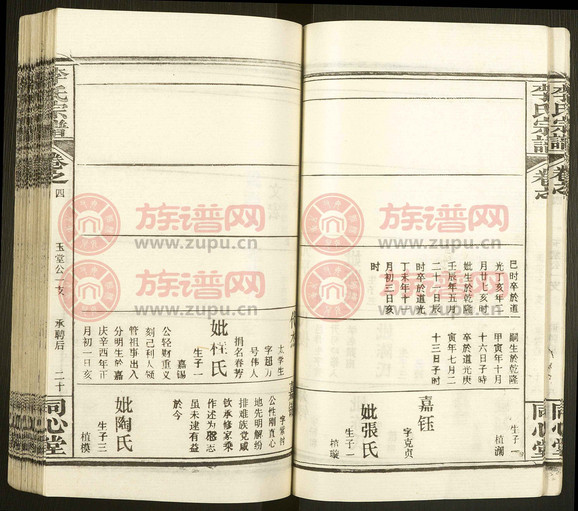 李氏宗譜
卷之
同心堂
巳時卒於道
光丁亥年
月廿七亥時
妣生於乾隆
壬辰年五月
二十二日辰
時卒於道光
丁未年十
月初三日亥
時
生子一
植瀾
嗣生於乾隆
甲寅年十月
十六日子時
卒於道光庚
寅年七月二
十三日子時
嘉鈺
字克貞
妣張氏
生子一
植璇
太學生
字蘊万
號偉人
捐名春芳
妣杜氏
生子一
嘉錫
公性剛直心
地先明解紛
排难族党咸
钦承修家乘
作述为邪志
虽未逮有益
於今
公轻财重义
刻己利人领
管祖事出入
分明生於嘉
庆辛酉年正
月初一日亥
妣陶氏
生子三
植模
李氏宗譜
卷之
四
玉堂公
支
承聘后
二十
同心堂
族谱网
www.zupu.cn
族谱网
www.zupu.cn
族谱网
www.zupu.cn
族谱网
www.zupu.cn